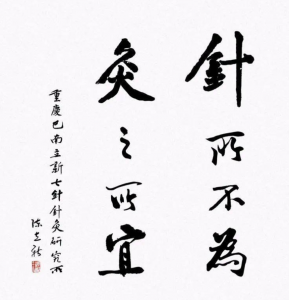 針所不為
灸之所宜
重慶巴南立新七針針灸研究所
陈立新